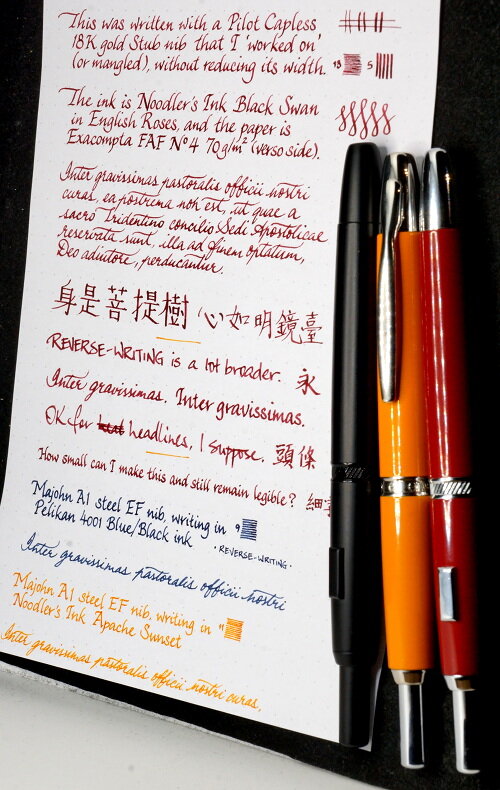 This was written with a Pilot Capless
18K gold Stub nib that I 'worked on'
(or mangled), without reducing its width.
13
5
The ink is Noodler's Ink Black Swan
in English Roses, and the paper is
Exacompta FAF Nº4 70g/m² (verso side).
Inter gravissimas pastoralis officii nostri
curas, ea postrema non est, ut quae a
sacro Tridentino concilio Sedi Apostolicae
reservata sunt, illa ad finem optatum,
Deo adiutore, perducantur.
身是菩提樹 心如明鏡臺
REVERSE-WRITING is a lot broader. 永
Inter gravissimas. Inter gravissimas.
OK for headlines, I suppose. 頭條
How small can I make this and still remain legible? 細字
Majohn A1 steel EF nib, writing in
Pelikan 4001 Blue/Black ink
9
·REVERSE-WRITING·
Inter gravissimas pastoralis officii nostri
Majohn A1 steel EF nib, writing in
Noodler's Ink Apache Sunset
11
Inter gravissimas pastoralis officii nostri curas,